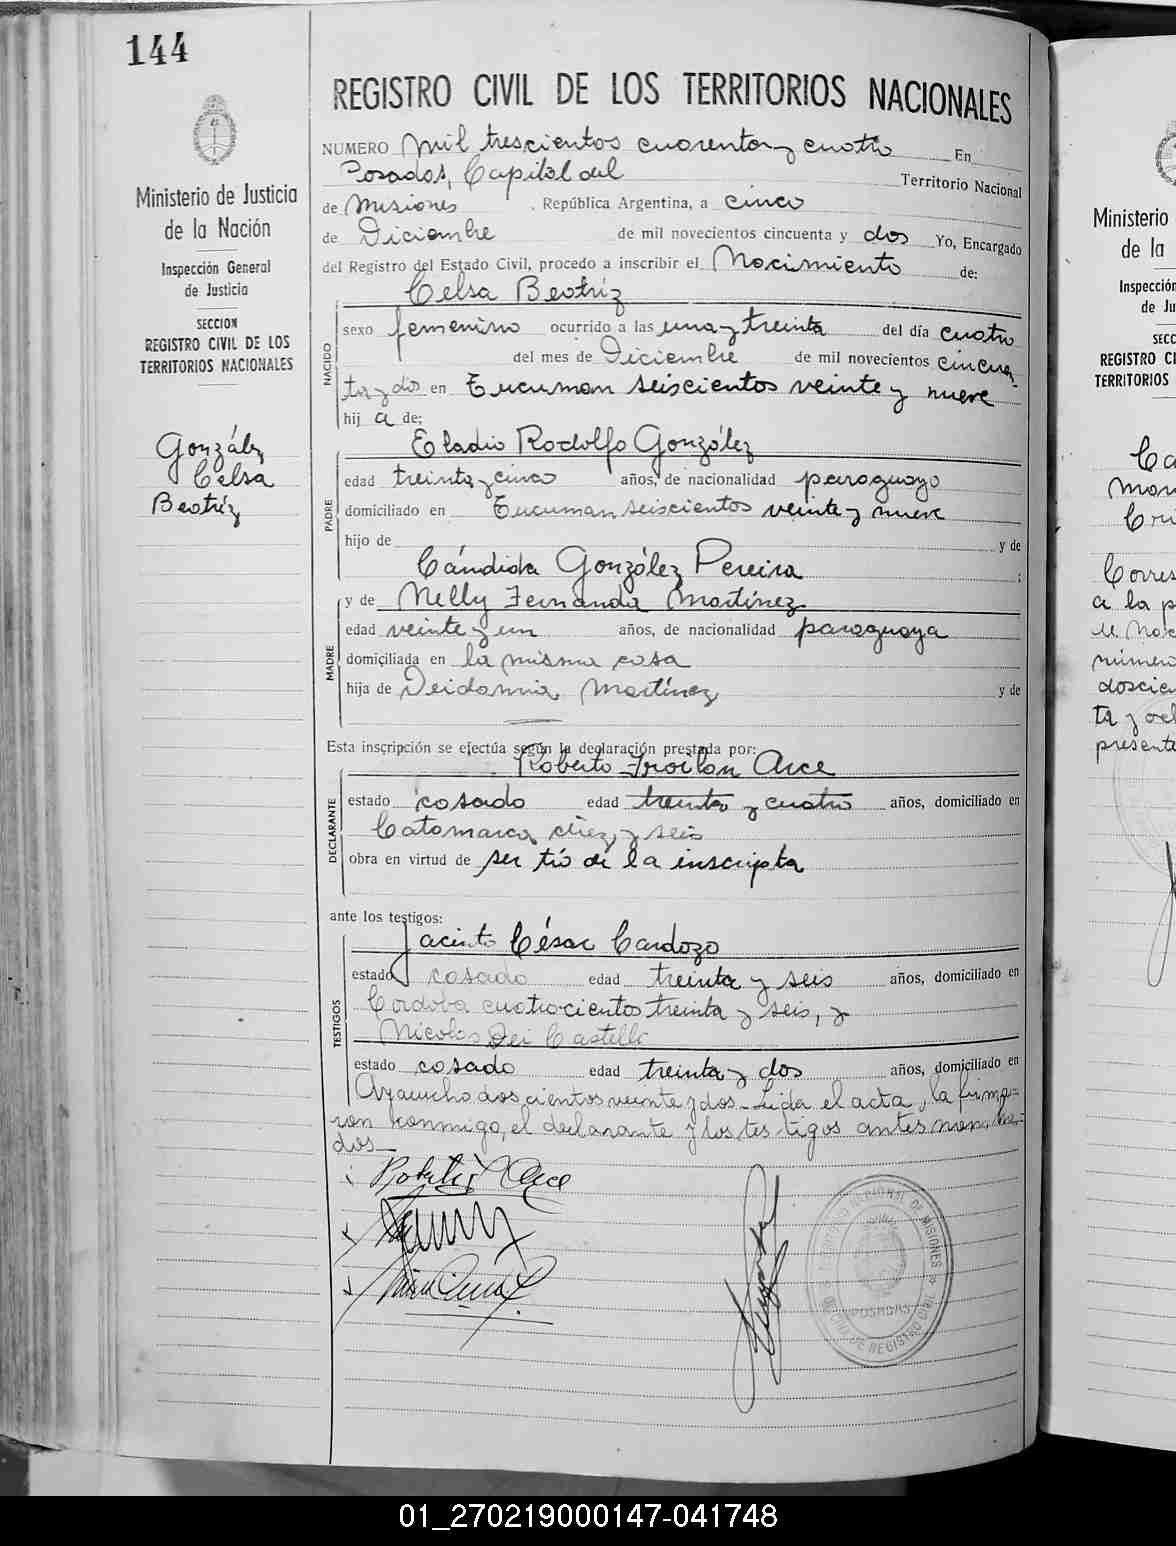 144
Ministerio de Justicia
de la Nación
Inspección General
de Justicia
SECCION
REGISTRO CIVIL DE LOS
TERRITORIOS NACIONALES
González
Celsa
Beatríz
REGISTRO CIVIL DE LOS TERRITORIOS NACIONALES
NUMERO Mil trescientos cuarenta y cuatro En
Posadas, Capital del Territorio Nacional
de Misiones, República Argentina, a cinco
de Diciembre de mil novecientos cincuenta y dos Yo, Encargado
del Registro del Estado Civil, procedo a inscribir el Nacimiento de:
Celsa Beatríz
NACIDO
sexo femenino ocurrido a las una y treinta del día cuatro
del mes de Diciembre de mil novecientos cincuen
ta y dos en Tucuman seiscientos veinte y nueve
hij a de:
Eladio Rodolfo González
PADRE
edad treinta y cinco años, de nacionalidad paraguayo
domiciliado en Tucuman seiscientos veinte y nueve
hijo de y de
Cándida González Pereira ;
MADRE
y de Nelly Fernanda Martínez
edad veinte y un años, de nacionalidad paraguaya
domiciliada en la misma casa
hija de Deidamia Martínez y de
Esta inscripción se efectúa según la declaración prestada por:
Roberto Froilan Arce
DECLARANTE
estado casado edad treinta y cuatro años, domiciliado en
Catamarca diez y seis
obra en virtud de ser tío de la inscripta
ante los testigos:
Jacinto César Cardozo
TESTIGOS
estado casado edad treinta y seis años, domiciliado en
Cordoba cuatrocientos treinta y seis, y
Nicolas Dei Castelli
estado casado edad treinta y dos años, domiciliado en
Ayacucho doscientos veinte y dos. Leida el acta, la firma-
ron conmigo, el declarante y los testigos antes nombra-
dos
Arce
TERRITORIO NACIONAL DE MISIONES
POSADAS
OFICINA DE REGISTRO CIVIL
Ministerio
de la
Inspección
de Ju
SECC
REGISTRO CI
TERRITORIOS
Corres
a la p
número
doscien
presente
01_270219000147-041748